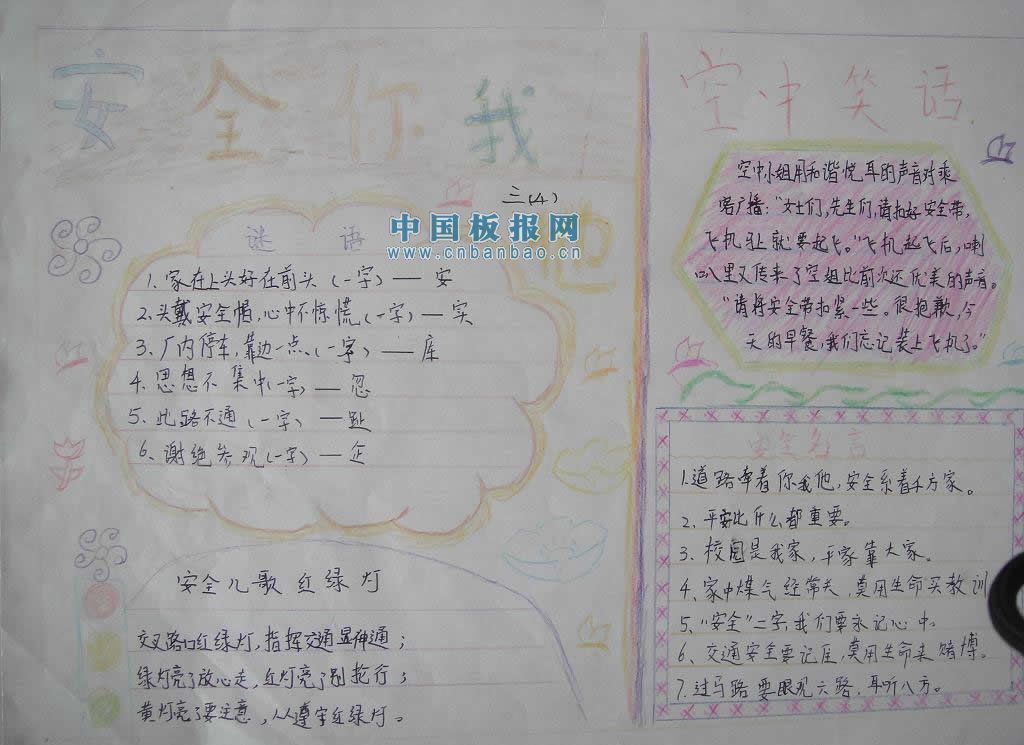 安全你我
他
三(4)
中国板报网
www.cnbanbao.cn
谜 语
1. 家在上头好在前头(一字)——安
2. 头戴安全帽,心中不惊慌(一字)——实
3. 厂内停车,靠边一点、(一字)——库
4. 思想不集中(一字)——忽
5. 此路不通(一字)——趾
6. 谢绝参观(一字)——企
安全儿歌 红绿灯
交叉路口红绿灯,指挥交通显伸通;
绿灯亮了放心走,红灯亮了别抢行;
黄灯亮了要注意,人人遵守红绿灯。
空中笑话.
空中小姐用和谐悦耳的声音对乘
客广播:“女士们,先生们,请扣好安全带,
飞机马上就要起飞。”飞机起飞后,喇
叭里又传来了空姐比前次还优美的声音。
“请将安全带扣紧一些。很抱歉,今
天的早餐,我们忘记装上飞机了。”
安全名言
1.道路牵着你我他,安全系着千万家。
2. 平安比什么都重要。
3. 校园是我家,平家靠大家。
4. 家中煤气经常关,莫用生命买教训
5. “安全”二字,我们要永记心中。
6. 交通安全要记住,莫用生命来赌博。
7. 过马路要眼观六路,耳听八方。